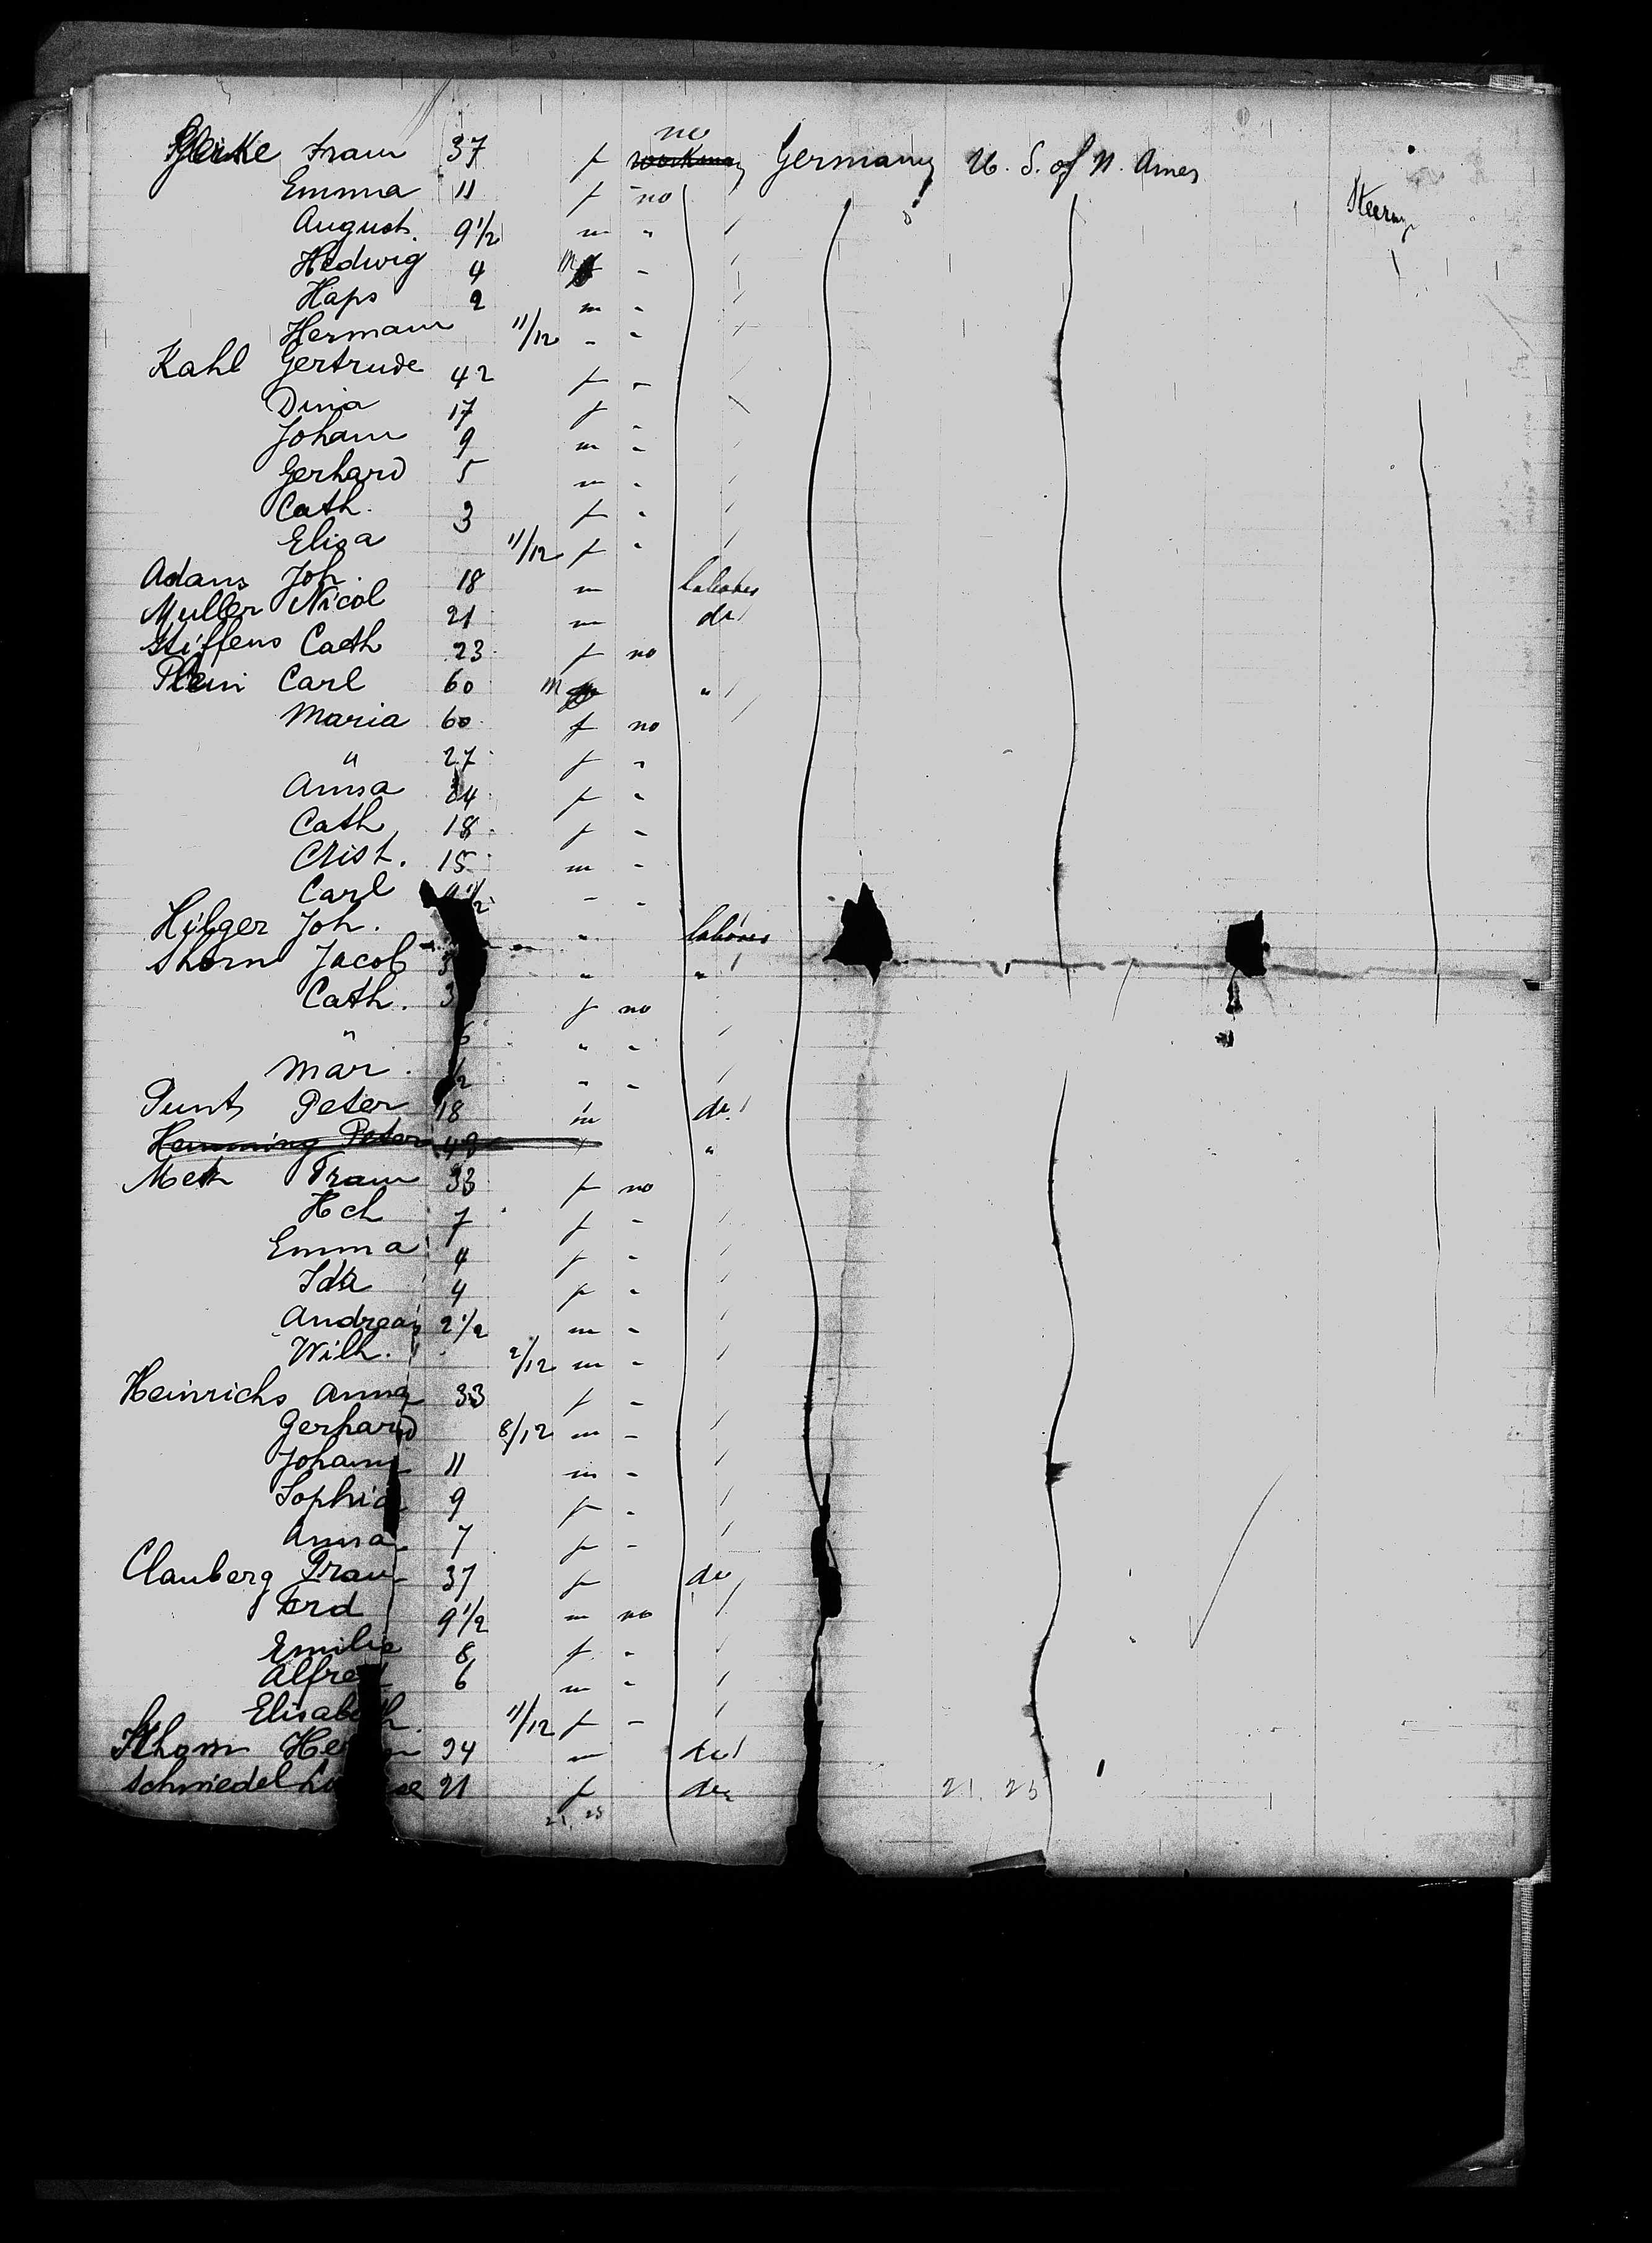 Gerke Frau 37 f no workman Germany U. S. of N. Amer Steerage
Emma 11 f no
August. 9 1/2 m "
Hedwig 4 m "
Haps 2 m "
Hermann 11/12 " "
Kahl Gertrude 42 f "
Dina 17 f "
Johann 9 m "
Gerhard 5 m "
Cath. 3 f "
Elisa 11/12 f "
Adams Joh. 18 m laborer
Muller Nicol 21 m do
Stiffens Cath 23 f no
Plein Carl 60 m "
Maria 60 f no
" 27 f "
Anna 24 f "
Cath 18 f "
Christ. 15 m "
Carl 9 1/2 " "
Hilger Joh. " laborer
Thorn Jacob 3 " "
Cath. 3 f no
" 6 " "
Mar. 1/2 " "
Punt Peter 18 m do
Hemming Peter 48 "
Metz Frau 33 f no
Hch 7 f "
Emma 4 f "
Ida 4 f "
Andreas 2 1/2 m "
Wilh. 2/12 m "
Heinrichs Anna 33 f "
Gerhard 8/12 m "
Johann 11 m "
Sophia 9 f "
Anna 7 f "
Clauberg Frau 37 f do
Ferd 9 1/2 m no
Emilie 8 f "
Alfred 6 m "
Elisabeth. 11/12 f "
He 24 m do
Schmiedel 21 f do
21. 25
21. 25